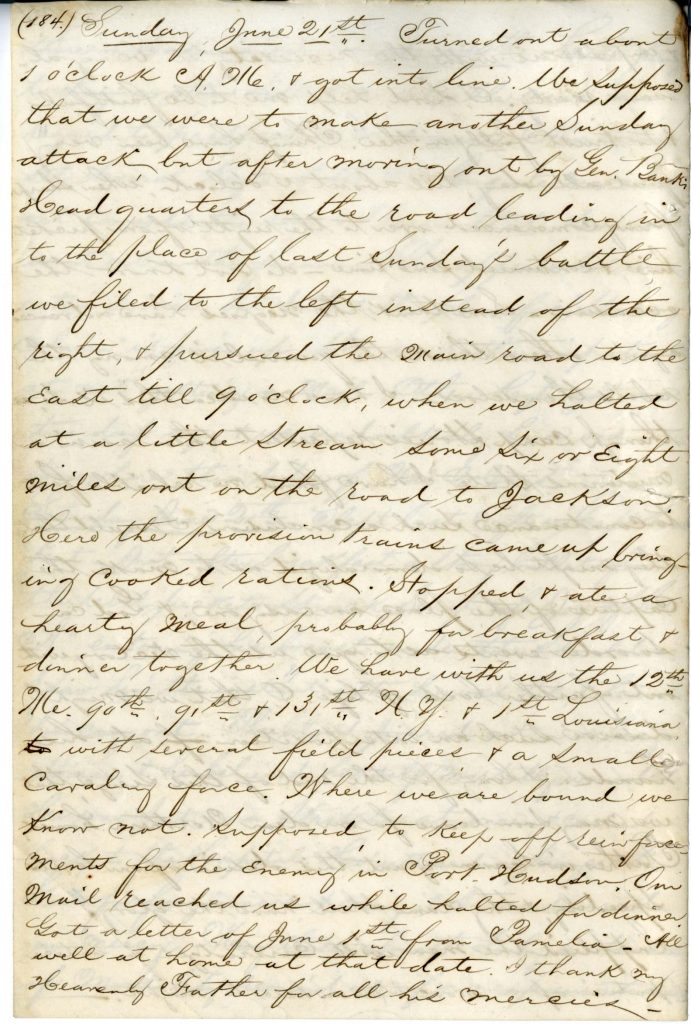 (184.) Sunday, June 21st. Turned out about
1 o'clock A.M. & got into line. We supposed
that we were to make another Sunday
attack, but after moving out by Gen. Banks
Headquarters to the road leading in
to the place of last Sunday's battle,
we filed to the left instead of the
right, & pursued the main road to the
East till 9 o'clock, when we halted
at a little stream some six or Eight
miles out on the road to Jackson.
Here the provision trains came up bring-
ing cooked rations. Stopped, & ate a
hearty meal, probably for breakfast &
dinner together. We have with us the 12th
Me. 90th. 91st & 131st N.Y. & 1st Louisiana
to with several field pieces & a small
Cavalry force. Where we are bound we
know not. Supposed, to keep off reinforce-
ments for the Enemy in Port Hudson. Our
Mail reached us while halted for dinner
Got a letter of June 1st from Pamelia - All
well at home at that date. I thank my
Heavenly Father for all his mercies -